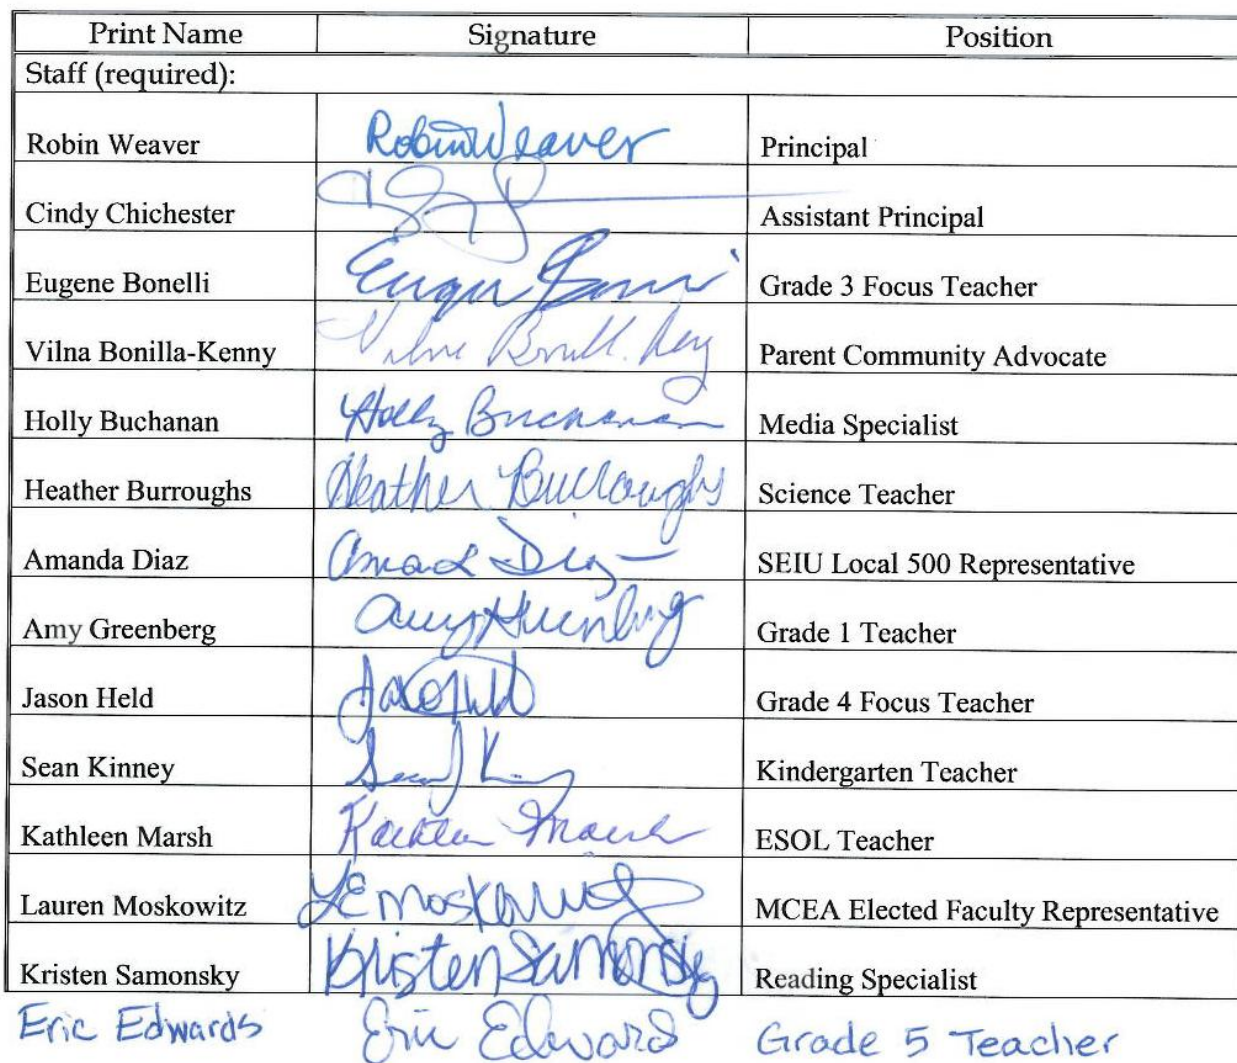 Print Name Signature Position
Staff (required):
Robin Weaver Robin Weaver Principal
Cindy Chichester Assistant Principal
Eugene Bonelli Grade 3 Focus Teacher
Vilna Bonilla-Kenny Parent Community Advocate
Holly Buchanan Holly Buchanan Media Specialist
Heather Burroughs Heather Burroughs Science Teacher
Amanda Diaz Diaz SEIU Local 500 Representative
Amy Greenberg Amy Greenberg Grade 1 Teacher
Jason Held Grade 4 Focus Teacher
Sean Kinney Kindergarten Teacher
Kathleen Marsh Kathleen Marsh ESOL Teacher
Lauren Moskowitz LE Moskowitz MCEA Elected Faculty Representative
Kristen Samonsky Kristen Samonsky Reading Specialist
Eric Edwards Eric Edwards Grade 5 Teacher